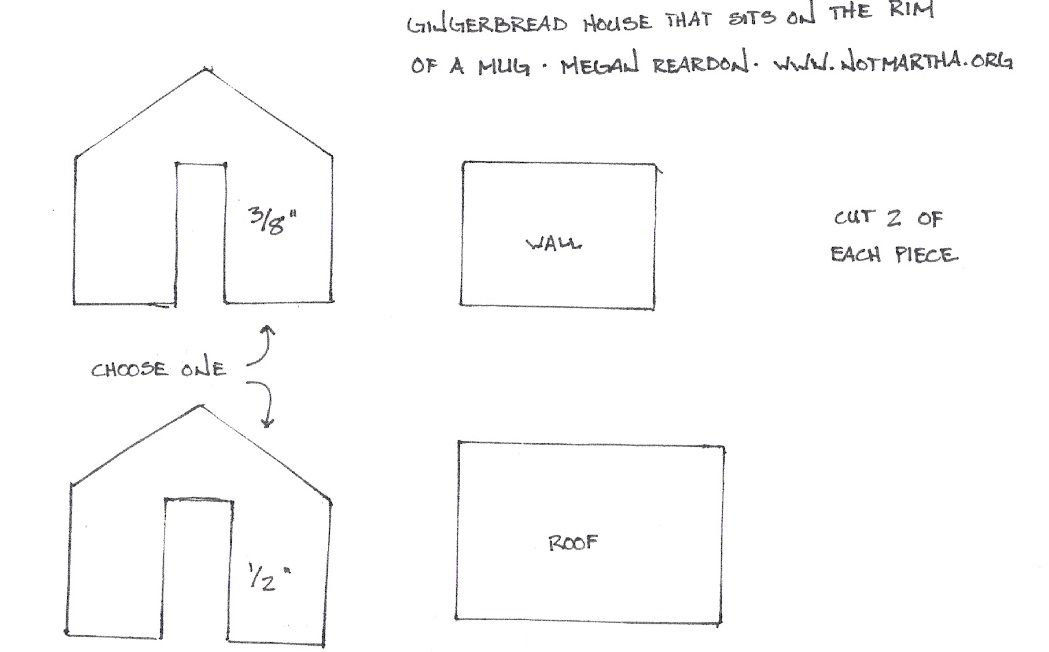 GINGERBREAD HOUSE THAT SITS ON THE RIM
OF A MUG · MEGAN REARDON · WWW.NOTMARTHA.ORG
3/8"
WALL
CUT 2 OF
EACH PIECE
CHOOSE ONE
1/2"
ROOF